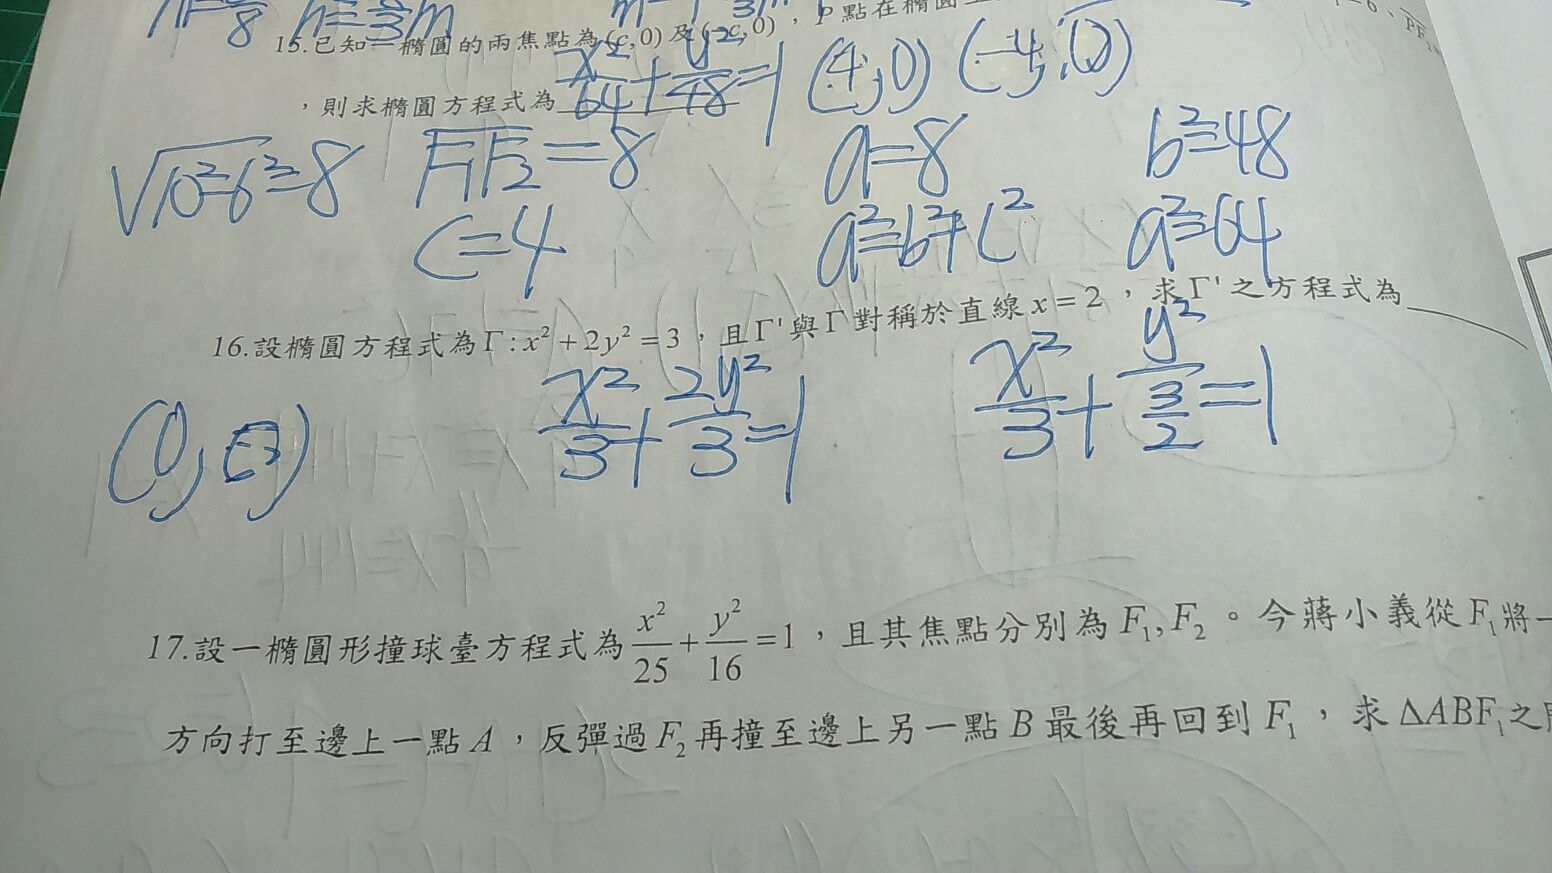 15.已知一橢圓的兩焦點為(c,0)及(-c,0)，P點在橢圓
，則求橢圓方程式為 x²/64+y²/48=1 (4,0) (-4,0)
√10²-6²=8 F₁F₂=8 a=8 b²=48
c=4 a²=b²+c² a²=64
16.設橢圓方程式為Γ:x²+2y²=3，且Γ'與Γ對稱於直線x=2，求Γ'之方程式為
x²/3+2y²/3=1 x²/3+y²/(3/2)=1
17.設一橢圓形撞球臺方程式為x²/25+y²/16=1，且其焦點分別為F₁,F₂。今蔣小義從F₁將一
方向打至邊上一點A，反彈過F₂再撞至邊上另一點B最後再回到F₁，求ΔABF₁之